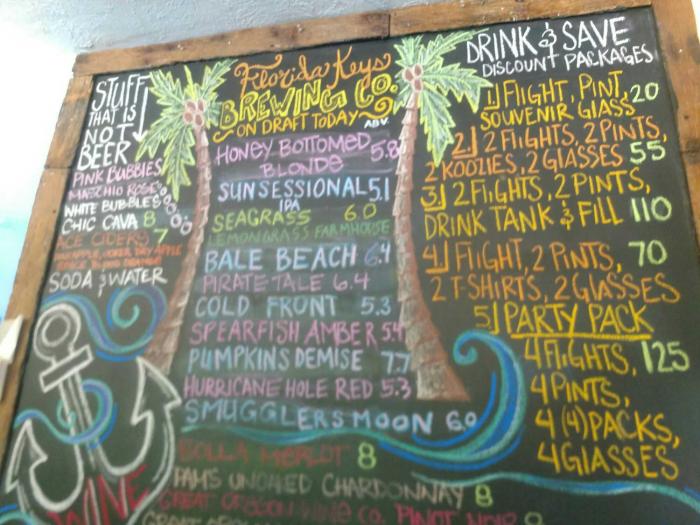 STUFF
THAT IS
NOT
BEER
PINK BUBBLES
WHITE BUBBLES
CHIC CAVA 8
ACE CIDERS 7
SODA & WATER
Florida Keys
BREWING CO.
ON DRAFT TODAY ABV.
HONEY BOTTOMED 5.8
BLONDE
SUNSESSIONAL 5.1
IPA
SEAGRASS 6.0
LEMONGRASS FARMHOUSE
BALE BEACH 6.4
PIRATE TALE 6.4
COLD FRONT 5.3
SPEARFISH AMBER 5.4
PUMPKINS DEMISE 7.7
HURRICANE HOLE RED 5.3
SMUGGLERS MOON 6.0
BOLLA MERLOT 8
UNOAKED CHARDONNAY 8
WINE CO. PINOT NOIR
WINE
DRINK & SAVE
DISCOUNT PACKAGES
1) FLIGHT, PINT, 20
SOUVENIR GLASS
2) 2 FLIGHTS, 2 PINTS,
2 KOOZIES, 2 GLASSES 55
3) 2 FLIGHTS, 2 PINTS,
DRINK TANK & FILL 110
4) FLIGHT, 2 PINTS, 70
2 T-SHIRTS, 2 GLASSES
5) PARTY PACK
4 FLIGHTS, 125
4 PINTS,
4 (4) PACKS,
4 GLASSES